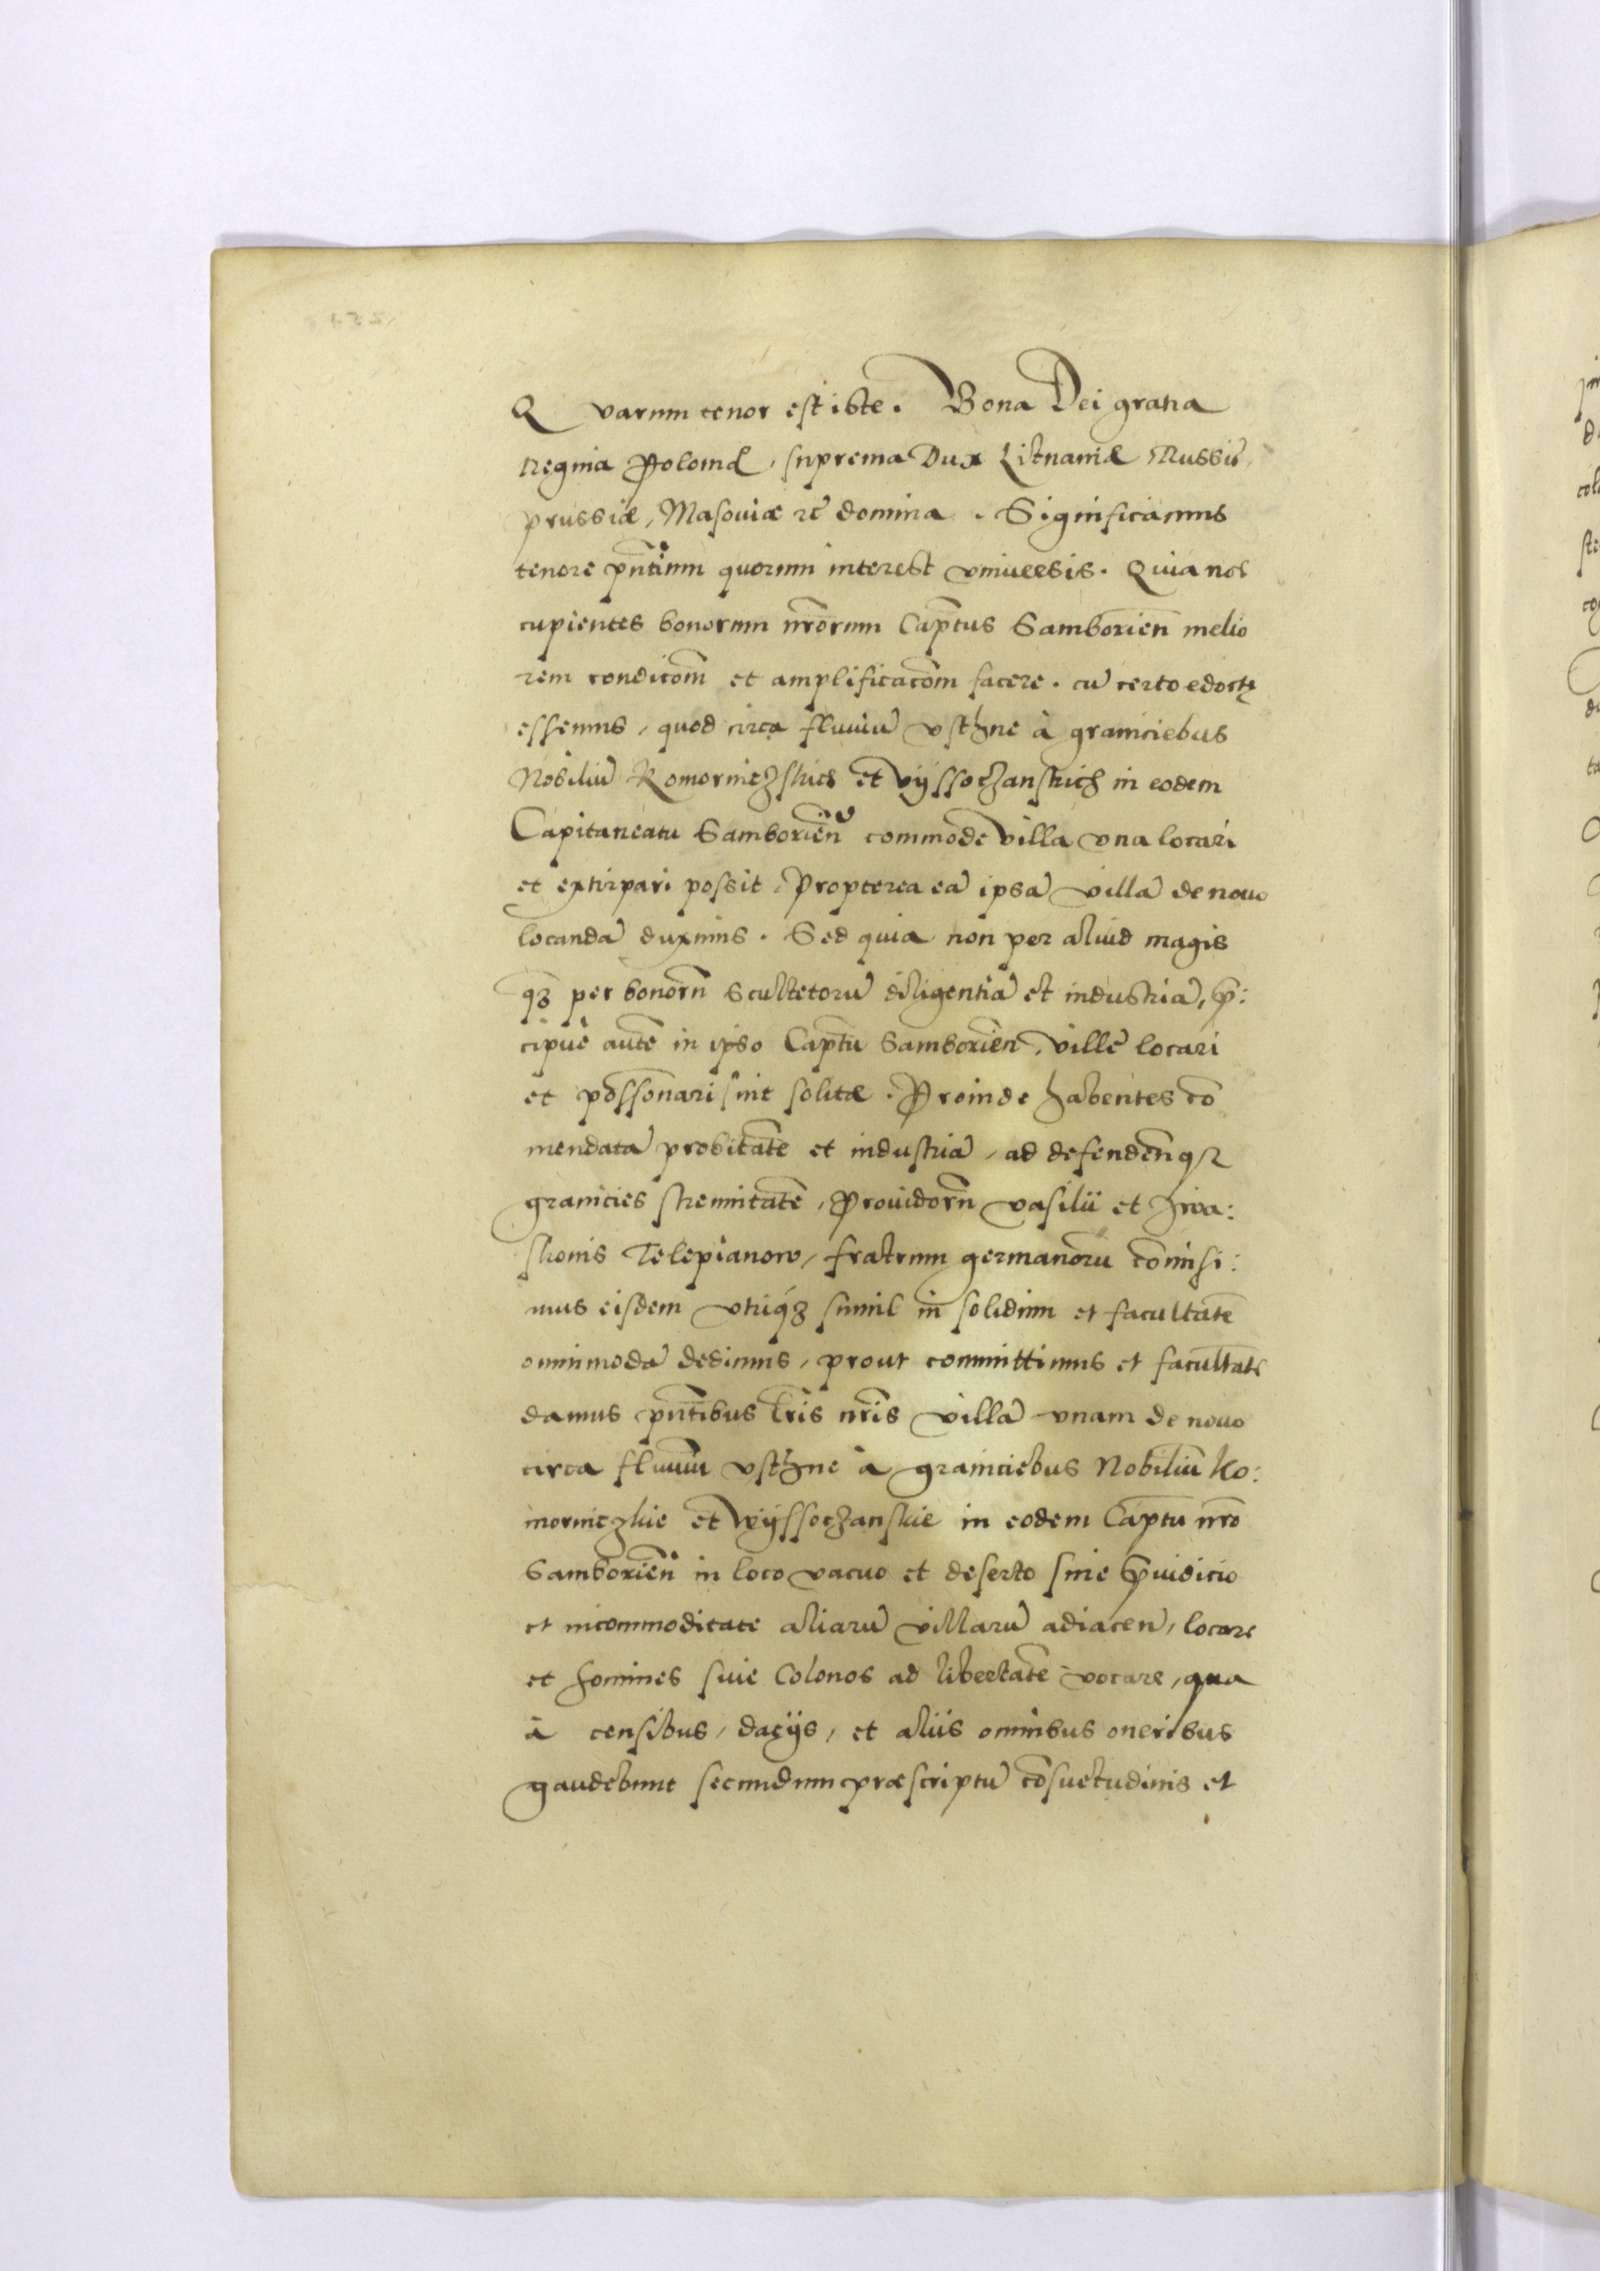 Quarum tenor est iste. Bona Dei gratia
Regina Poloniæ, suprema Dux Lithuaniæ Russiæ,
prussiæ, Masouiæ ꝛc̃ domina. Significamus
tenore pñtium quorum interest vniuersis. Quia nos
cupientes bonorum nr̃orum Cap̃tus Samborieñ melio
rem condicõm et amplificacõm facere. cũ certo edocti
essemus, quod circa fluuiũ vsthne à graniciebus
Nobiliũ Komorniczskich et vÿssoczanskich in eodem
Capitaneatu Samborieñ commode villa vna locari
et extirpari possit. Propterea eã ipsã villã de nouo
locandã duximus. Sed quia non per aliud magis
qꝫ per bonorũ Scultetorũ diligentiã et industriã, p̃:
cipuè autẽ in ipso Cap̃tu Samborieñ, villę locari
et possonari sint solitæ. Proinde habentes cõ
mendatã probitatẽ et industriã, ad defendenqꝫ
granicies strennitatẽ, Prouidorũ vasilii et Iwa:
skonis Telepianow, fratrum germanorũ cõmisi:
mus eisdem vtriqꝫ simul in solidum et facultatẽ
omnimodã dedimus, prout committimus et facultatẽ
damus pñtibus lr̃is nr̃is villã vnam de nouo
circa fluuiũ vsthne à graniciebus Nobiliũ Ko:
morniczkie et Wÿssoczanskie in eodem Cap̃tu nr̃o
Samborieñ in loco vacuo et deserto sine p̃iudicio
et incommoditate aliarũ villarũ adiaceñ, locare
et homines siue Colonos ad libertatẽ vocare, qua
à censibus, dacÿs, et aliis omnibus oneribus
gaudebunt secundum præscriptũ cõsuetudinis et